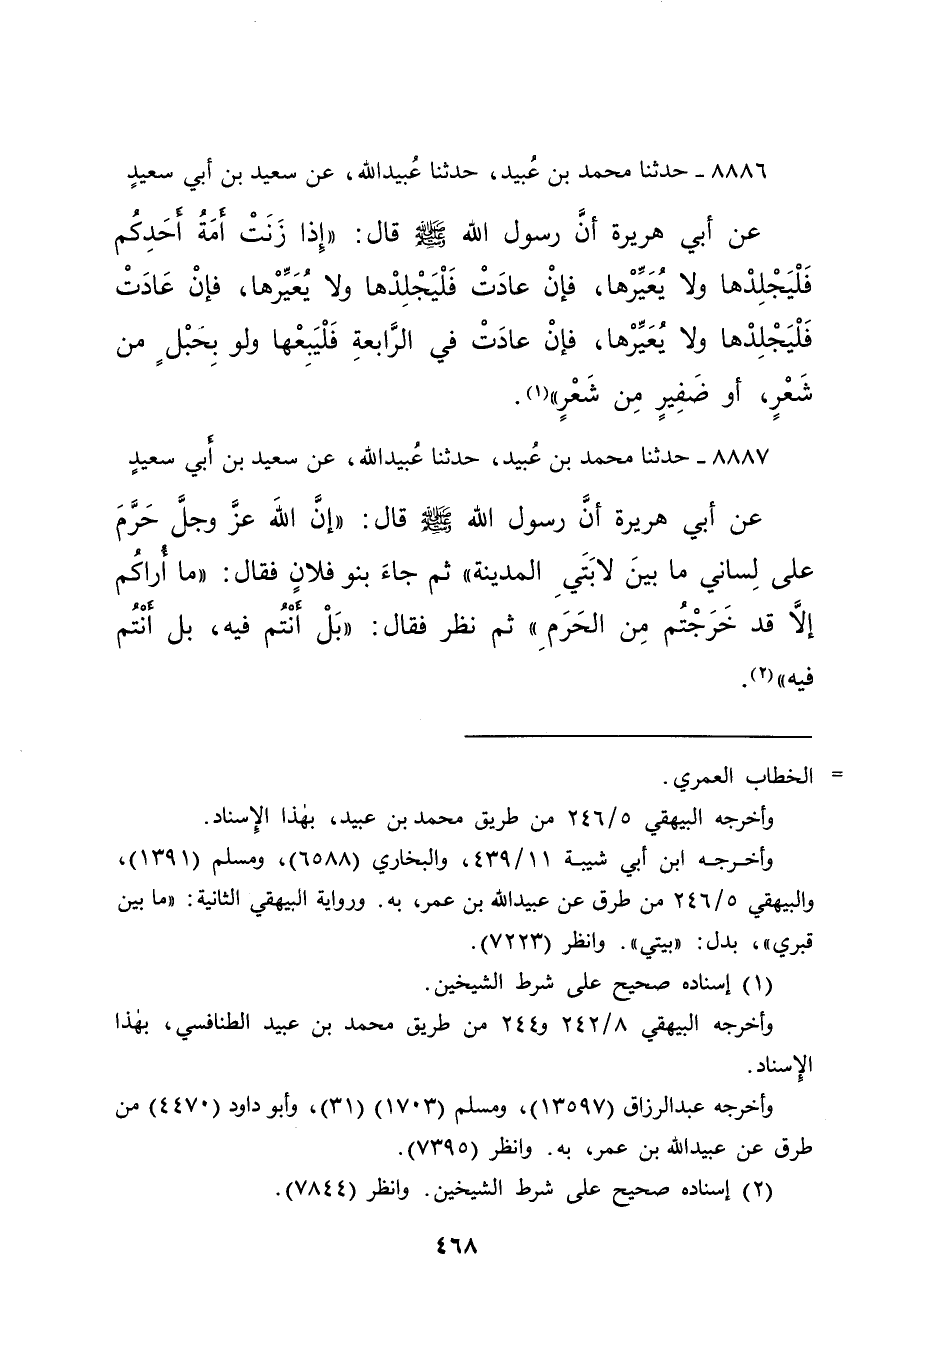 ٨٨٨٦ ـ حدثنا محمد بن عُبيد، حدثنا عُبيدالله، عن سعيد بن أبي سعيدٍ
عن أبي هريرة أنَّ رسول الله ﷺ قال: «إِذا زَنَتْ أَمَةُ أَحَدِكُم
فَلْيَجْلِدْها ولا يُعَيِّرْها، فإنْ عادَتْ فَلْيَجْلِدْها ولا يُعَيِّرْها، فإنْ عَادَتْ
فَلْيَجْلِدْها ولا يُعَيِّرْها، فإنْ عادَتْ في الرَّابعةِ فَلْيَبِعْها ولو بِحَبْلٍ من
شَعْرٍ، أو ضَفِيرٍ مِن شَعْرٍ»(١).
٨٨٨٧ ـ حدثنا محمد بن عُبيد، حدثنا عُبيدالله، عن سعيد بن أَبي سعيدٍ
عن أبي هريرة أنَّ رسول الله ﷺ قال: «إنَّ اللهَ عزَّ وجلَّ حَرَّمَ
على لِساني ما بينَ لابَتَيِ المدينة» ثم جاءَ بنو فلانٍ فقال: «ما أُراكُم
إلَّا قد خَرَجْتُم مِن الحَرَمِ» ثم نظر فقال: «بَلْ أَنْتُم فيه، بل أَنْتُم
فيه»(٢).
= الخطاب العمري.
وأخرجه البيهقي ٢٤٦/٥ من طريق محمد بن عبيد، بهٰذا الإِسناد.
وأخرجه ابن أبي شيبة ٤٣٩/١١، والبخاري (٦٥٨٨)، ومسلم (١٣٩١)،
والبيهقي ٢٤٦/٥ من طرق عن عبيدالله بن عمر، به. ورواية البيهقي الثانية: «ما بين
قبري»، بدل: «بيتي». وانظر (٧٢٢٣).
(١) إسناده صحيح على شرط الشيخين.
وأخرجه البيهقي ٢٤٢/٨ و٢٤٤ من طريق محمد بن عبيد الطنافسي، بهٰذا
الإِسناد.
وأخرجه عبدالرزاق (١٣٥٩٧)، ومسلم (١٧٠٣) (٣١)، وأبو داود (٤٤٧٠) من
طرق عن عبيدالله بن عمر، به. وانظر (٧٣٩٥).
(٢) إسناده صحيح على شرط الشيخين. وانظر (٧٨٤٤).
٤٦٨